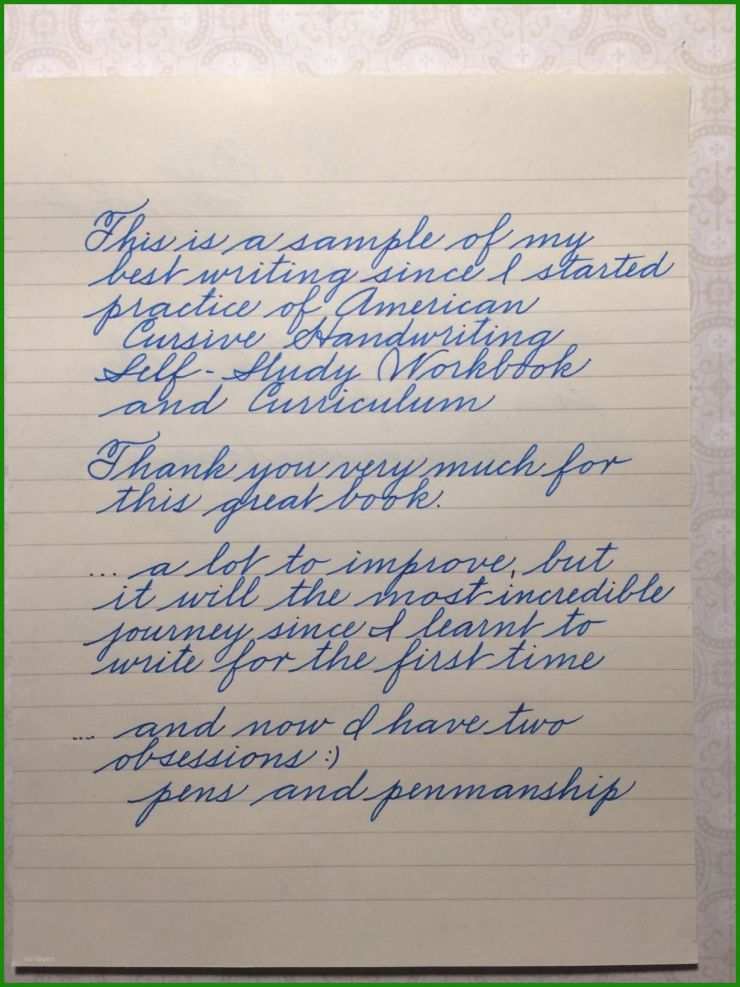 This is a sample of my
best writing since I started
practice of American
Cursive Handwriting
Self-Study Workbook
and Curriculum
Thank you very much for
this great book.
... a lot to improve, but
it will the most incredible
journey since I learnt to
write for the first time
... and now I have two
obsessions :)
pens and penmanship